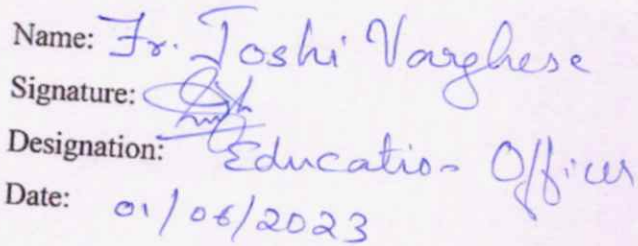 Name: Fr. Joshi Varghese
Signature:
Designation: Education Officer
Date: 01/06/2023